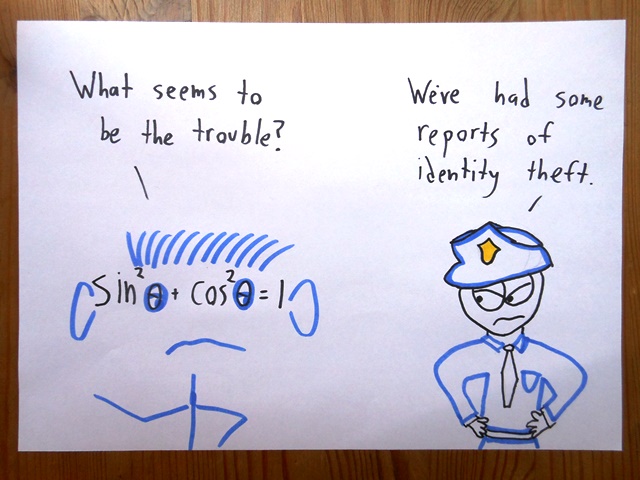 What seems to
be the trouble?
We've had some
reports of
identity theft.
sin²θ + cos²θ = 1